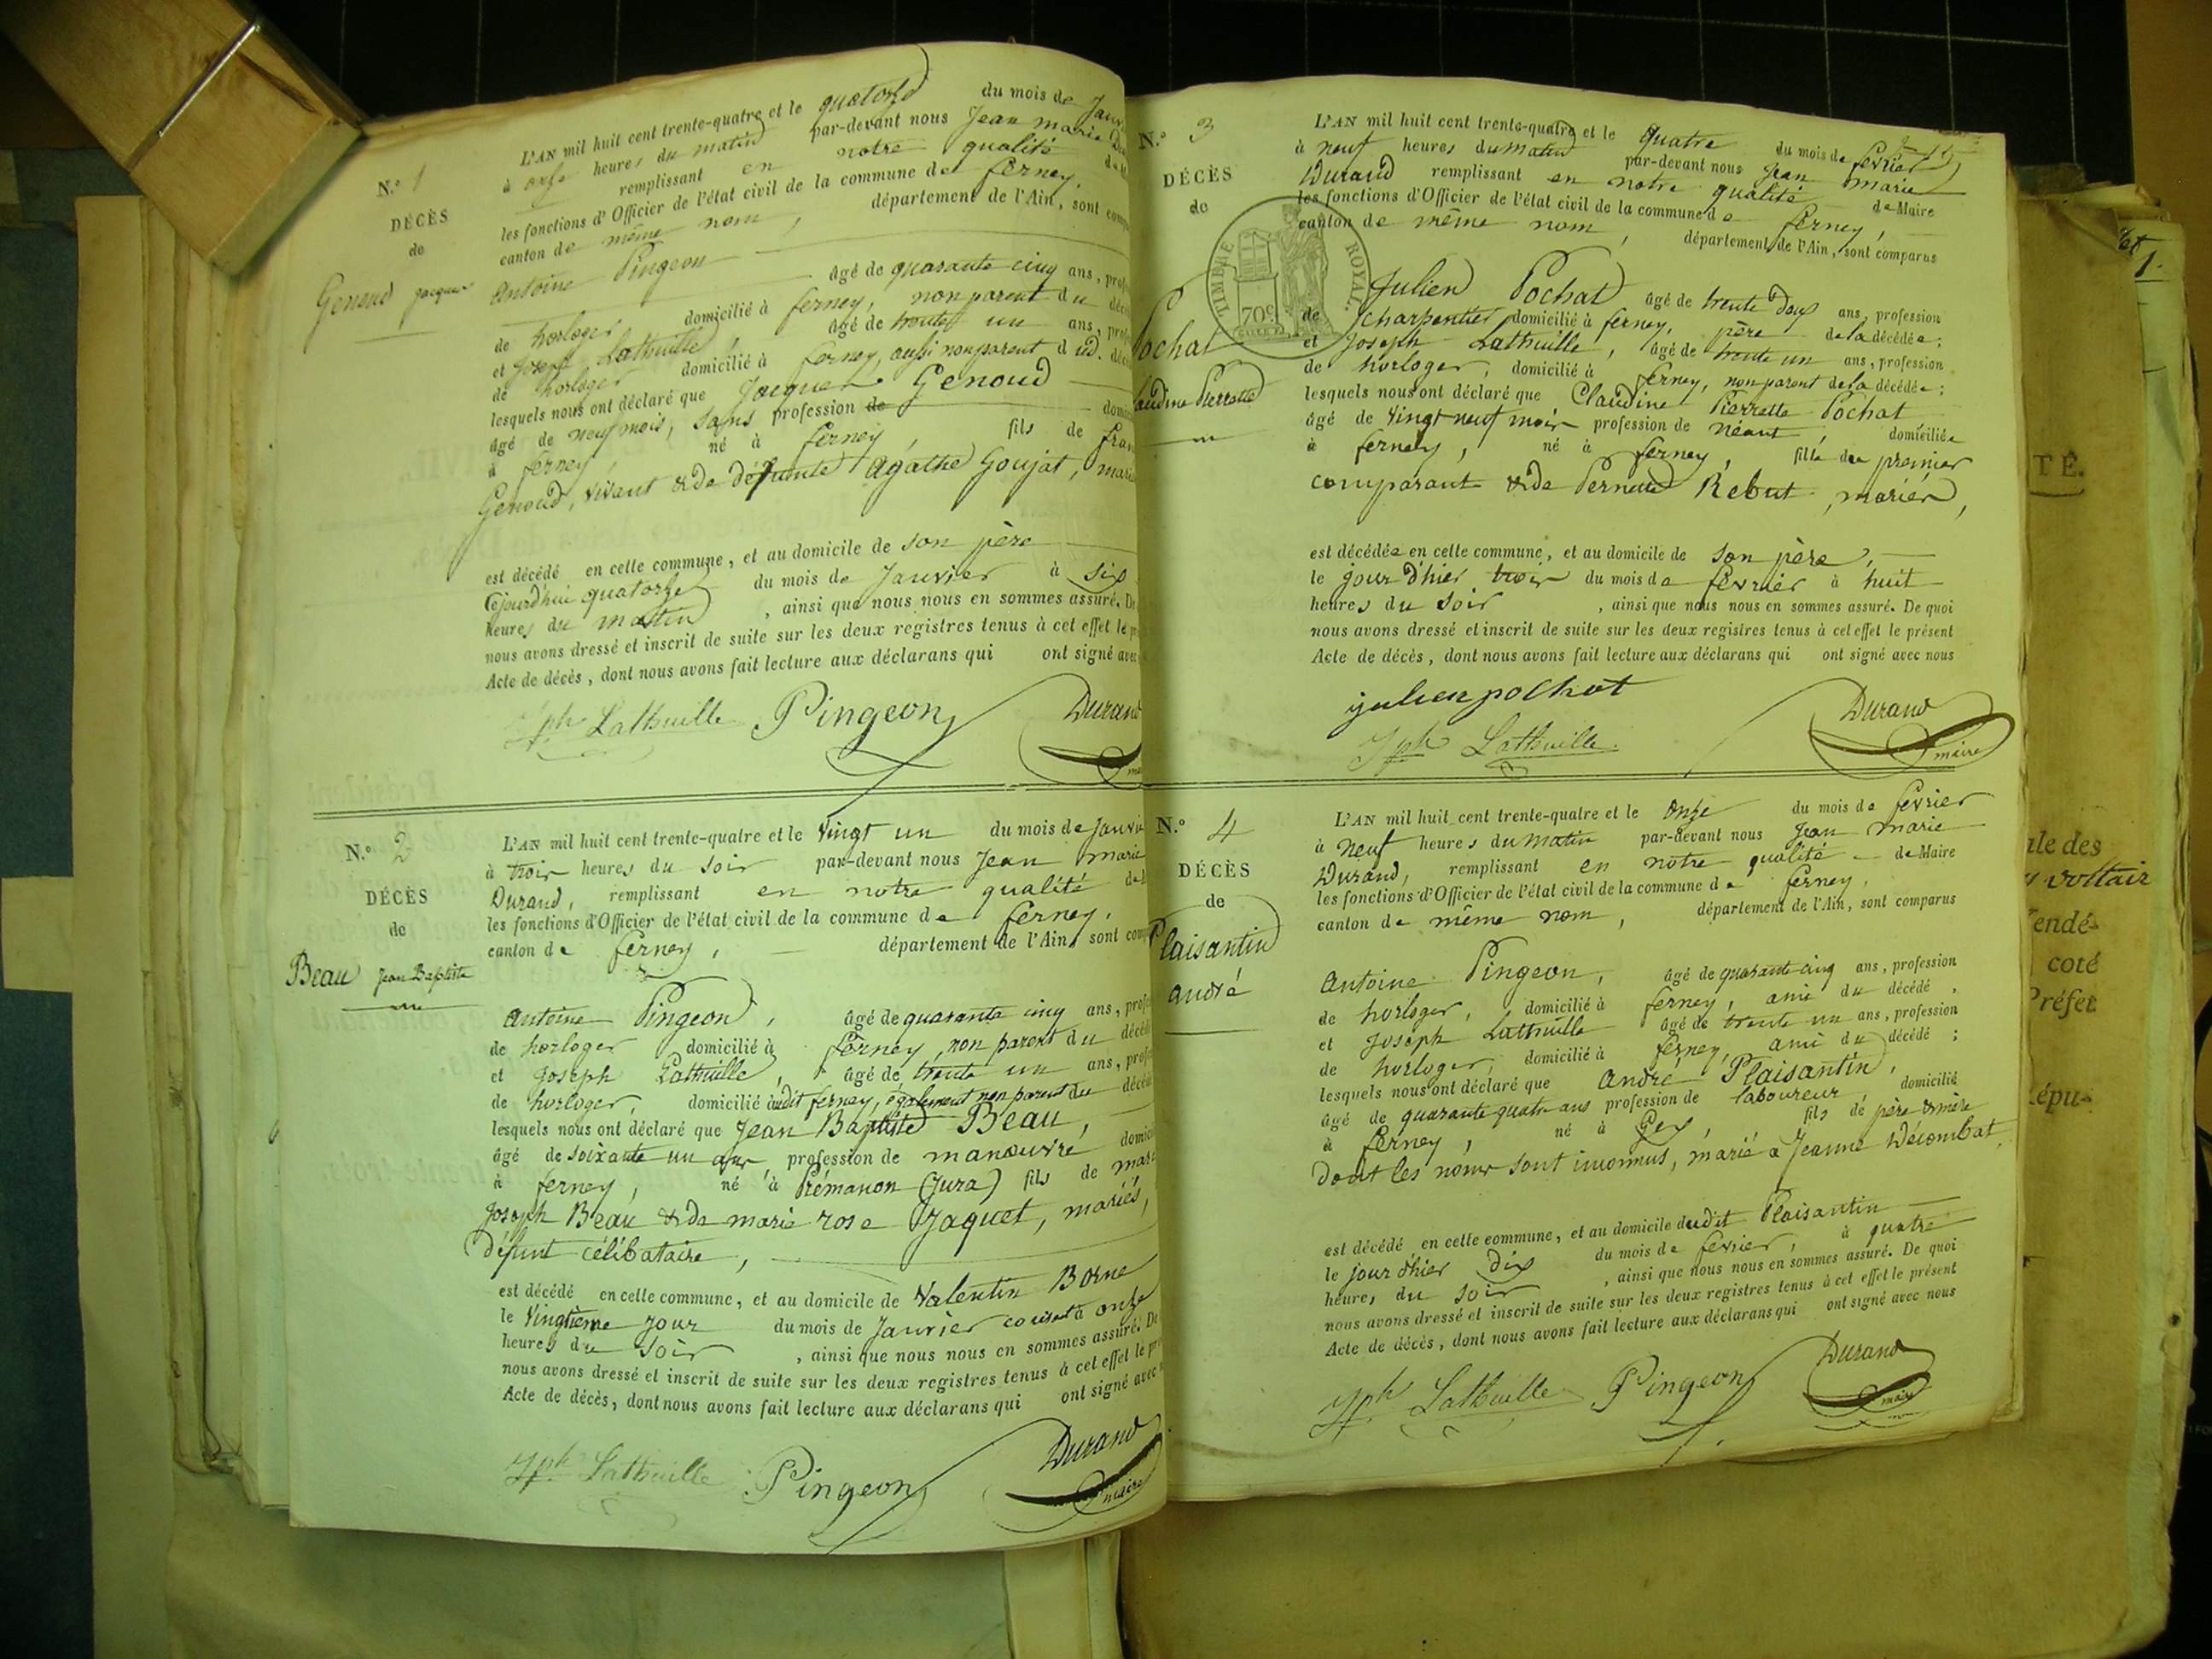 N.° 1
DÉCÈS
de
Genoud Jacques
L'AN mil huit cent trente-quatre et le quatorze du mois de Janv
à onze heures du matin par-devant nous Jean marie
remplissant en notre qualité de M
les fonctions d'Officier de l'état civil de la commune de ferney,
canton de même nom, département de l'Ain, sont comp
Antoine Pingeon âgé de quarante cinq ans, prof
de horloger domicilié à ferney, non parent du déc
et Joseph Lathuille, âgé de trente un ans, prof
de horloger domicilié à ferney, aussi non parent dud. déc
lesquels nous ont déclaré que Jacques Genoud
âgé de neuf mois, sans profession de domi
à ferney, né à ferney, fils de fran
Genoud, vivant & de défunte Agathe Goujat, mari
est décédé en cette commune, et au domicile de son père
cejourd'hui quatorze du mois de Janvier à six
heures du matin, ainsi que nous nous en sommes assuré. De
nous avons dressé et inscrit de suite sur les deux registres tenus à cet effet le p
Acte de décès, dont nous avons fait lecture aux déclarans qui ont signé avec
Jph Lathuille Pingeon Durand
N.° 2
DÉCÈS
de
Beau Jean Baptiste
L'AN mil huit cent trente-quatre et le vingt un du mois de Janvi
à trois heures du soir par-devant nous Jean marie
Durand, remplissant en notre qualité de
les fonctions d'Officier de l'état civil de la commune de ferney,
canton de ferney, département de l'Ain, sont comp
Antoine Pingeon, âgé de quarante cinq ans, profe
de horloger domicilié à ferney, non parent du décéd
et Joseph Lathuille, âgé de trente un ans, profe
de horloger, domicilié audit ferney, également non parent du décéd
lesquels nous ont déclaré que Jean Baptiste Beau,
âgé de soixante un ans, profession de manœuvre domici
à ferney, né à Prémanon (Jura) fils de
Joseph Beau & de marie rose Jaquet, mariés,
défunt célibataire,
est décédé en cette commune, et au domicile de Valentin Borne
le vingtième jour du mois de Janvier courant à onze
heures du soir, ainsi que nous nous en sommes assuré. De
nous avons dressé et inscrit de suite sur les deux registres tenus à cet effet le pr
Acte de décès, dont nous avons fait lecture aux déclarans qui ont signé avec
Jph Lathuille Pingeon Durand
maire
N.° 3
DÉCÈS
de
Pochat
audine Pierrette
TIMBRE ROYAL
70c
L'AN mil huit cent trente-quatre et le quatre du mois de février
à neuf heures du matin par-devant nous Jean marie
Durand remplissant en notre qualité de Maire
les fonctions d'Officier de l'état civil de la commune de ferney,
canton de même nom, département de l'Ain, sont comparus
Julien Pochat âgé de trente deux ans, profession
de charpentier domicilié à ferney, père de la décédée;
et Joseph Lathuille, âgé de trente un ans, profession
de horloger, domicilié à ferney, non parent de la décédée;
lesquels nous ont déclaré que Claudine Pierrette Pochat
âgé de vingt neuf mois profession de néant, domiciliée
à ferney, né à ferney, fille du premier
comparant & de Pernette Rebut, mariés,
est décédée en cette commune, et au domicile de son père,
le jour d'hier trois du mois de février à huit
heures du soir, ainsi que nous nous en sommes assuré. De quoi
nous avons dressé et inscrit de suite sur les deux registres tenus à cet effet le présent
Acte de décès, dont nous avons fait lecture aux déclarans qui ont signé avec nous
julien pochat
Jph Lathuille. Durand
maire
N.° 4
DÉCÈS
de
Plaisantin
andré
L'AN mil huit cent trente-quatre et le onze du mois de février
à neuf heures du matin par-devant nous Jean marie
Durand, remplissant en notre qualité de Maire
les fonctions d'Officier de l'état civil de la commune de ferney,
canton de même nom, département de l'Ain, sont comparus
Antoine Pingeon, âgé de quarante cinq ans, profession
de horloger, domicilié à ferney, ami du décédé,
et Joseph Lathuille âgé de trente un ans, profession
de horloger, domicilié à ferney, ami du décédé;
lesquels nous ont déclaré que André Plaisantin,
âgé de quarante quatre ans profession de laboureur domicilié
à ferney, né à Gex, fils de père & mère
dont les noms sont inconnus, marié à Jeanne Décombat,
est décédé en cette commune, et au domicile dudit Plaisantin
le jour d'hier dix du mois de février, à quatre
heures du soir, ainsi que nous nous en sommes assuré. De quoi
nous avons dressé et inscrit de suite sur les deux registres tenus à cet effet le présent
Acte de décès, dont nous avons fait lecture aux déclarans qui ont signé avec nous
Jph Lathuille Pingeon Durand
maire
1.
TÉ.
ale des
voltair
endé-
coté
Préfet
épu-